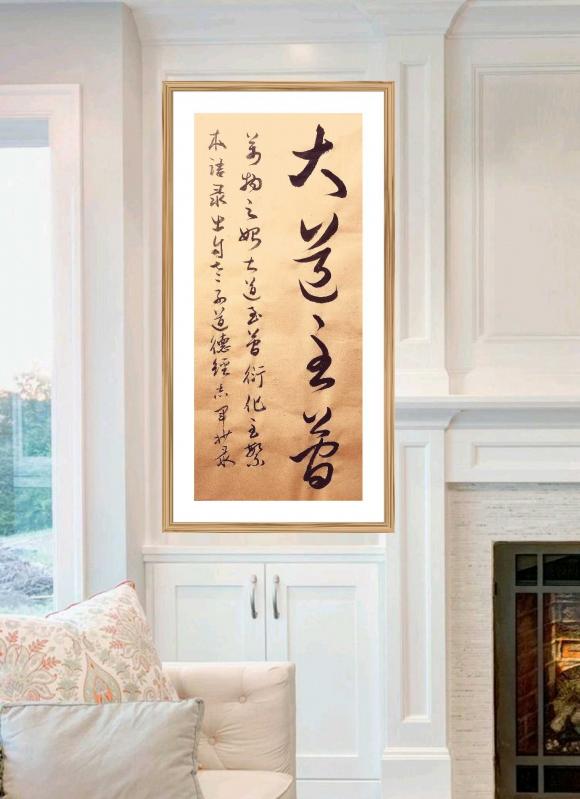 大道至簡
萬物之始大道至簡衍化至繁
本語录出自老子道德經志軍抄录